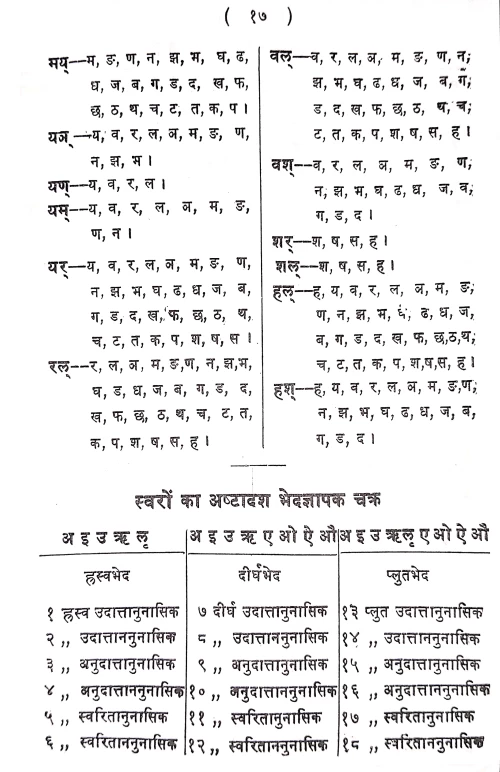 ( १७ )
मय्—म, ङ ण, न, झ, भ, घ, ढ,
ध, ज, ब, ग, ड, द, ख, फ,
छ, ठ, थ, च, ट, त, क, प ।
यञ्—य, व, र, ल, ञ, म, ङ, ण,
न, झ, भ ।
यण्—य, व, र, ल ।
यम्—य, व, र, ल, ञ, म, ङ,
ण, न ।
यर्—य, व, र, ल, ञ, म, ङ, ण,
न, झ, भ, घ, ढ, ध, ज, ब,
ग, ड, द, ख, फ, छ, ठ, थ,
च, ट, त, क, प, श, ष, स ।
रल्—र, ल, ञ, म, ङ, ण, न, झ, भ,
घ, ड, ध, ज, ब, ग, ड, द,
ख, फ, छ, ठ, थ, च, ट, त,
क, प, श, ष, स, ह ।
वल्—व, र, ल, ञ, म, ङ, ण, न,
झ, भ, घ, ढ, ध, ज, ब, ग,
ड, द, ख, फ, छ, ठ, थ, च,
ट, त, क, प, श, ष, स, ह ।
वश्—व, र, ल, ञ, म, ङ, ण,
न, झ, भ, घ, ढ, ध, ज, ब,
ग, ड, द ।
शर्—श, ष, स, ह ।
शल्—श, ष, स, ह ।
हल्—ह, य, व, र, ल, ञ, म, ङ,
ण, न, झ, भ, ढ, ध, ज,
ब, ग, ड, द, ख, फ, छ, ठ, थ,
च, ट, त, क, प, श, ष, स, ह ।
हश्—ह, य, व, र, ल, ञ, म, ङ, ण,
न, झ, भ, घ, ढ, ध, ज, ब,
ग, ड, द ।
स्वरों का अष्टादश भेदज्ञापक चक्र
अ इ उ ऋ लृ | अ इ उ ऋ ए ओ ऐ औ | अ इ उ ऋ लृ ए ओ ऐ औ
ह्रस्वभेद | दीर्घभेद | प्लुतभेद
१ ह्रस्व उदात्तानुनासिक | ७ दीर्घ उदात्तानुनासिक | १३ प्लुत उदात्तानुनासिक
२ ,, उदात्ताननुनासिक | ८ ,, उदात्ताननुनासिक | १४ ,, उदात्ताननुनासिक
३ ,, अनुदात्तानुनासिक | ९ ,, अनुदात्तानुनासिक | १५ ,, अनुदात्तानुनासिक
४ ,, अनुदात्ताननुनासिक | १० ,, अनुदात्ताननुनासिक | १६ ,, अनुदात्ताननुनासिक
५ ,, स्वरितानुनासिक | ११ ,, स्वरितानुनासिक | १७ ,, स्वरितानुनासिक
६ ,, स्वरिताननुनासिक | १२ ,, स्वरिताननुनासिक | १८ ,, स्वरिताननुनासिक